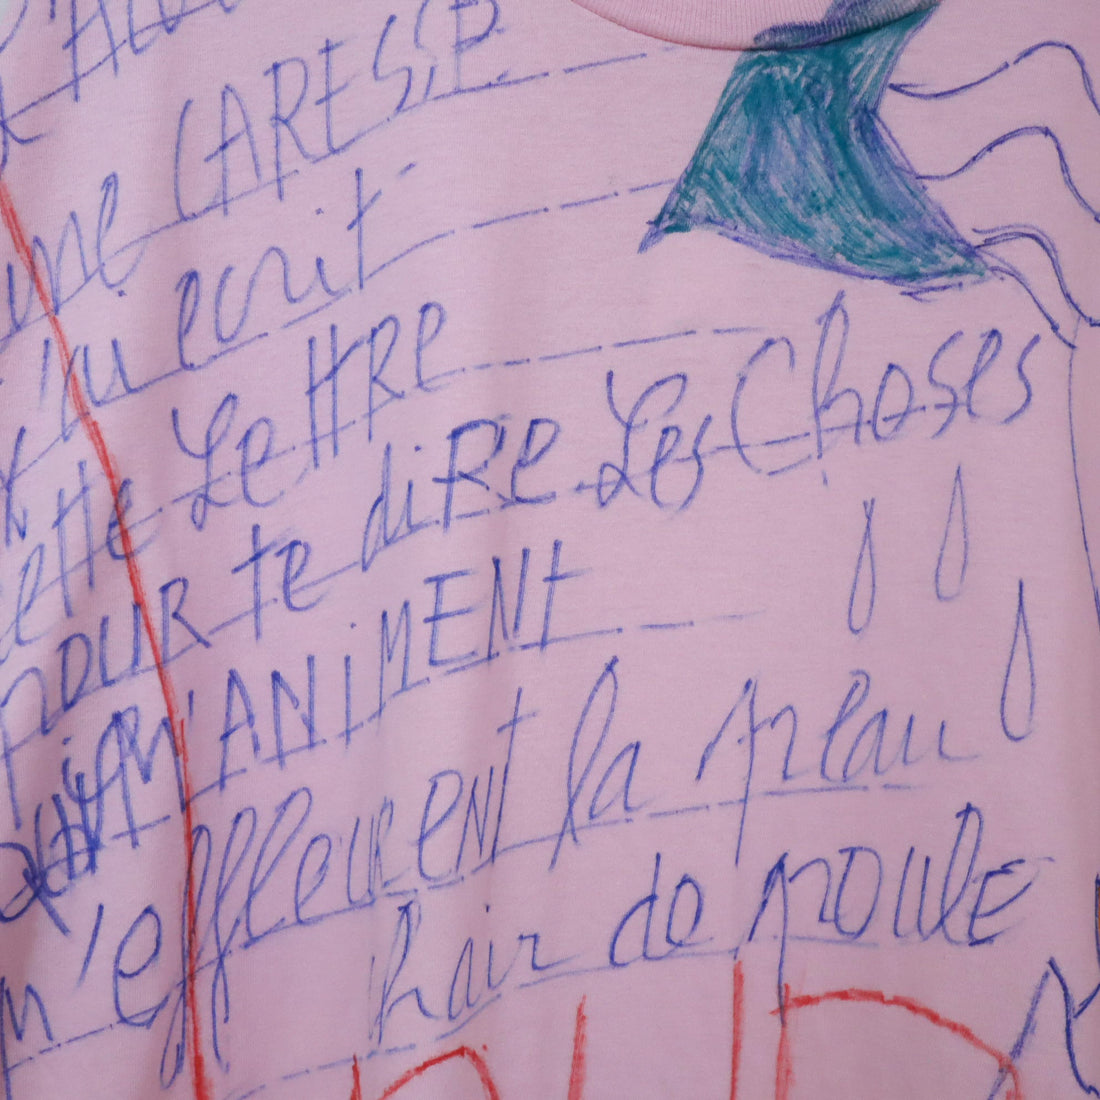 une CARESSE
j'ai ecrit
cette LettRe
pour te diRe Les Choses
qui M'ANiMENt
m'effleurent la peau
hair de poule